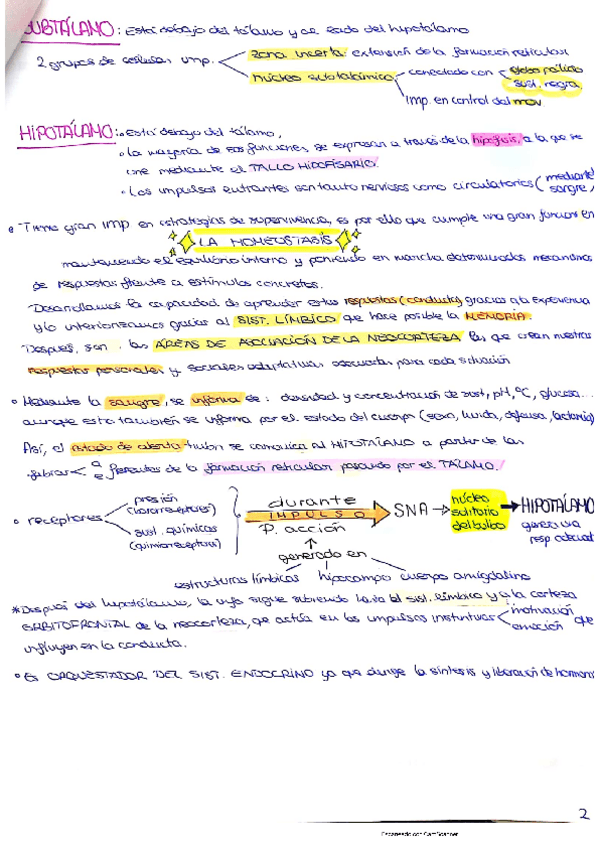 SUBTÁLAMO: Está debajo del tálamo y al lado del hipotálamo
2 grupos de células imp. zona incerta: extensión de la formación reticular
núcleo subtalámico conectado con globo pálido
sust. negra.
imp. en control del mov
HIPOTÁLAMO: • Está debajo del tálamo,
• La mayoría de sus funciones se expresan a través de la hipófisis, a la que se
une mediante el TALLO HIPOFISARIO.
• Los impulsos entrantes son tanto nerviosos como circulatorios (mediante
sangre)
• Tiene gran imp en estrategias de supervivencia, es por ello que cumple una gran función en
LA HOMEOSTASIS
manteniendo el equilibrio interno y poniendo en marcha determinados mecanismos
de respuestas frente a estímulos concretos.
Desarrollamos la capacidad de aprender estas respuestas (conducta) gracias a la experiencia
y lo interiorizamos gracias al SIST. LÍMBICO que hace posible la MEMORIA.
Después, son las ÁREAS DE ASOCIACIÓN DE LA NEOCORTEZA las que crean nuestras
respuestas personales y sociales voluntarias adecuadas para cada situación
• Mediante la sangre, se informa de: densidad y concentración de sust, pH, ºC, glucosa...
aunque esta también se informa por el estado del cuerpo (sexo, huida, defensa, lactancia)
Así, el estado de alerta tmbn se comunica al HIPOTÁLAMO a partir de las
fibras a
e ferentes de la formación reticular pasando por el TÁLAMO.
• receptores presión
(barorreceptores)
sust. químicas
(quimiorreceptores)
durante
IMPULSO
P. acción
SNA → núcleo
solitario
del bulbo → HIPOTÁLAMO
genera una
resp adecuad
generado en
estructuras límbicas hipocampo cuerpo amigdalino
*Después del hipotálamo, la info sigue subiendo hacia el sist. límbico y a la corteza
ORBITOFRONTAL de la neocorteza, que actúa en los impulsos instintivos motivación
emoción que
influyen en la conducta.
• Es ORQUESTADOR DEL SIST. ENDOCRINO ya que dirige la síntesis y liberación de hormonas
2
Escaneado con CamScanner